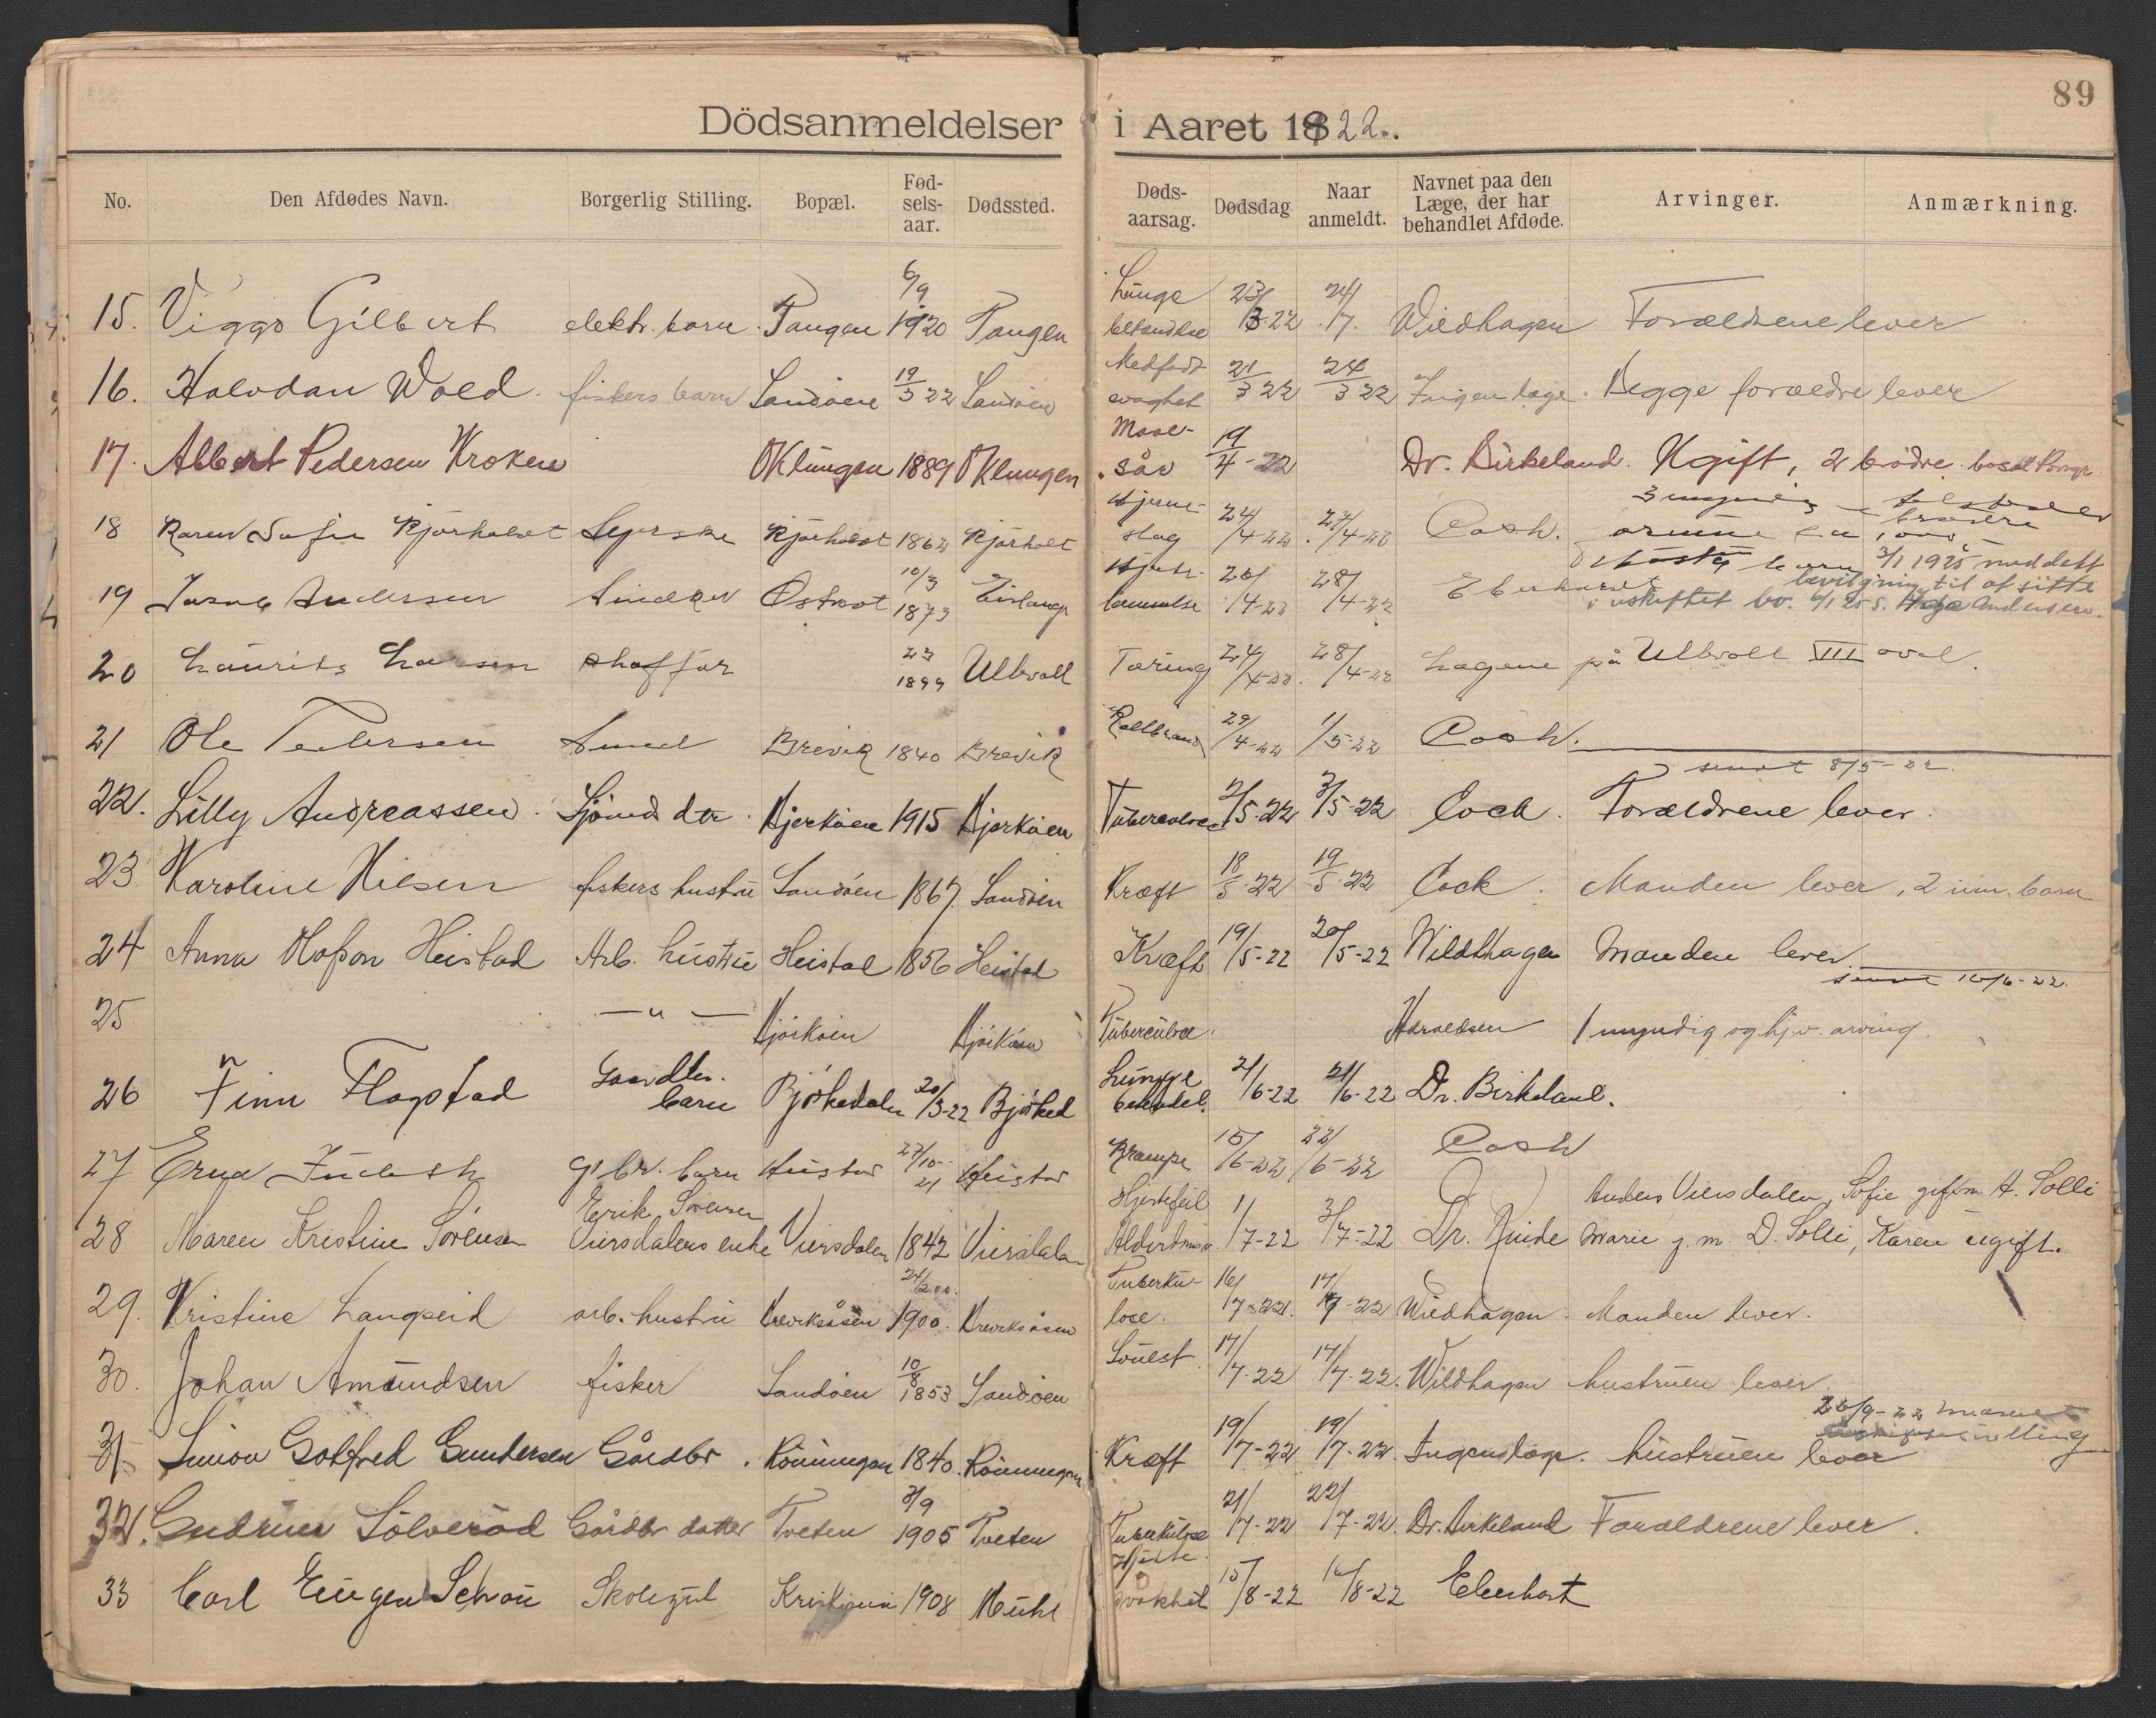 89
Dödsanmeldelser i Aaret 1922.
No. Den Afdødes Navn. Borgerlig Stilling. Bopæl. Fød-sels-aar. Dødssted. Døds-aarsag. Dødsdag Naar anmeldt. Navnet paa den Læge, der har behandlet Afdøde. Arvinger. Anmærkning.
15. Viggo Gilbert elektr. barn Tangen 6/9 1920 Tangen Lunge betændelse 23/3-22 24/ Wildhagen Forældrene lever
16. Halvdan Wold fiskers barn Sandöen 19/3 22 Sandöen Medfødt svaghet 21/3 22 24/3 22 Ingen læge. Begge forældre lever
17. Albert Pedersen Kroken Oklungen 1889 Oklungen Mave-sår 19/4-22 Dr. Birkeland. Ugift, 2 brödre bosat Porsgr.
18 Karen Sofie Kjörholt Syerske Kjørholt 1862 Kjørholt slag 24/4-22 27/4-22 Cock.
19 Andersen Snedker Ostrøt 10/3 1873 Eidanger lammelse 20/4-22 28/4-22 Eberhardt 3/1 1925 meddelt
bevilgning til at sitte
i uskiftet bo. Andersen.
20 Laurits Larsen 23 1899 Ullevoll Tæring 24/4-22 28/4-22 Lægene på Ullevoll III avd.
21 Ole Pedersen Smed Brevik 1840 Brevik Koldbrand 29/4-22 1/5-22 Cock.
sendt 8/5-22
22. Lilly Andreassen Sjömds dtr. Bjerköen 1915 Bjerköen Tuberculose 2/5-22 3/5-22 Cock. Forældrene lever.
23 Karoline Nilsen fiskers hustru Sandöen 1867 Sandöen Kræft 18/5-22 19/5-22 Cock. Manden lever, 2 barn
24 Anna Olafson Heistad Arb. hustru Heistad 1856 Heistad Kræft 19/5-22 20/5-22 Wildthagen Manden lever
sendt 10/6-22.
25 — " — Bjørkøen Bjørkøen Tuberculose Haraldsen 1 umyndig og hjv. arving.
26 Finn Flogstad Gaardbr. barn Björkedalen 20/3-22 Björked Lunge betændel. 21/6-22 21/6-22 Dr. Birkeland.
27 Erna g.br. barn Heistad 27/10-21 Heistad Krampe 15/6-22 22/6-22 Cock
28 Maren Kristine Sörensen Erik Sörensen Viersdalens enke Viersdalen 1842 Viersdalen Hjertefeil Alderdomssv. 1/7-22 3/7-22 Dr. Anders Viersdalen, Sofie gift m. A. Solli
Marie g. m. D. Solli, Karen ugift.
29. Kristine Langseid arb. hustru 1900 Tuberku-lose. 16/7-22. 17/7-22 Wildhagen. Manden lever.
30. Johan Amundsen fisker Sandöen 10/8 1853 Sandöen Svulst 17/7-22 17/7-22. Wildhagen hustruen lever
31 Simon Gotfred Gundersen Gårdbr. Rönningen 1840. Rönningen Kræft 19/7-22 19/7-22. Ingen læge. hustruen lever
32. Gudrun Sölveröd Gårdbr datter Tveten 3/9 1905 Tveten Tuberkulose 21/7-22 22/7-22. Dr. Birkeland Forældrene lever.
33 Carl Eugen Schou Skolegut Kristiania 1908 Hjerte svakhet 15/8-22 16/8-22 Eberhart